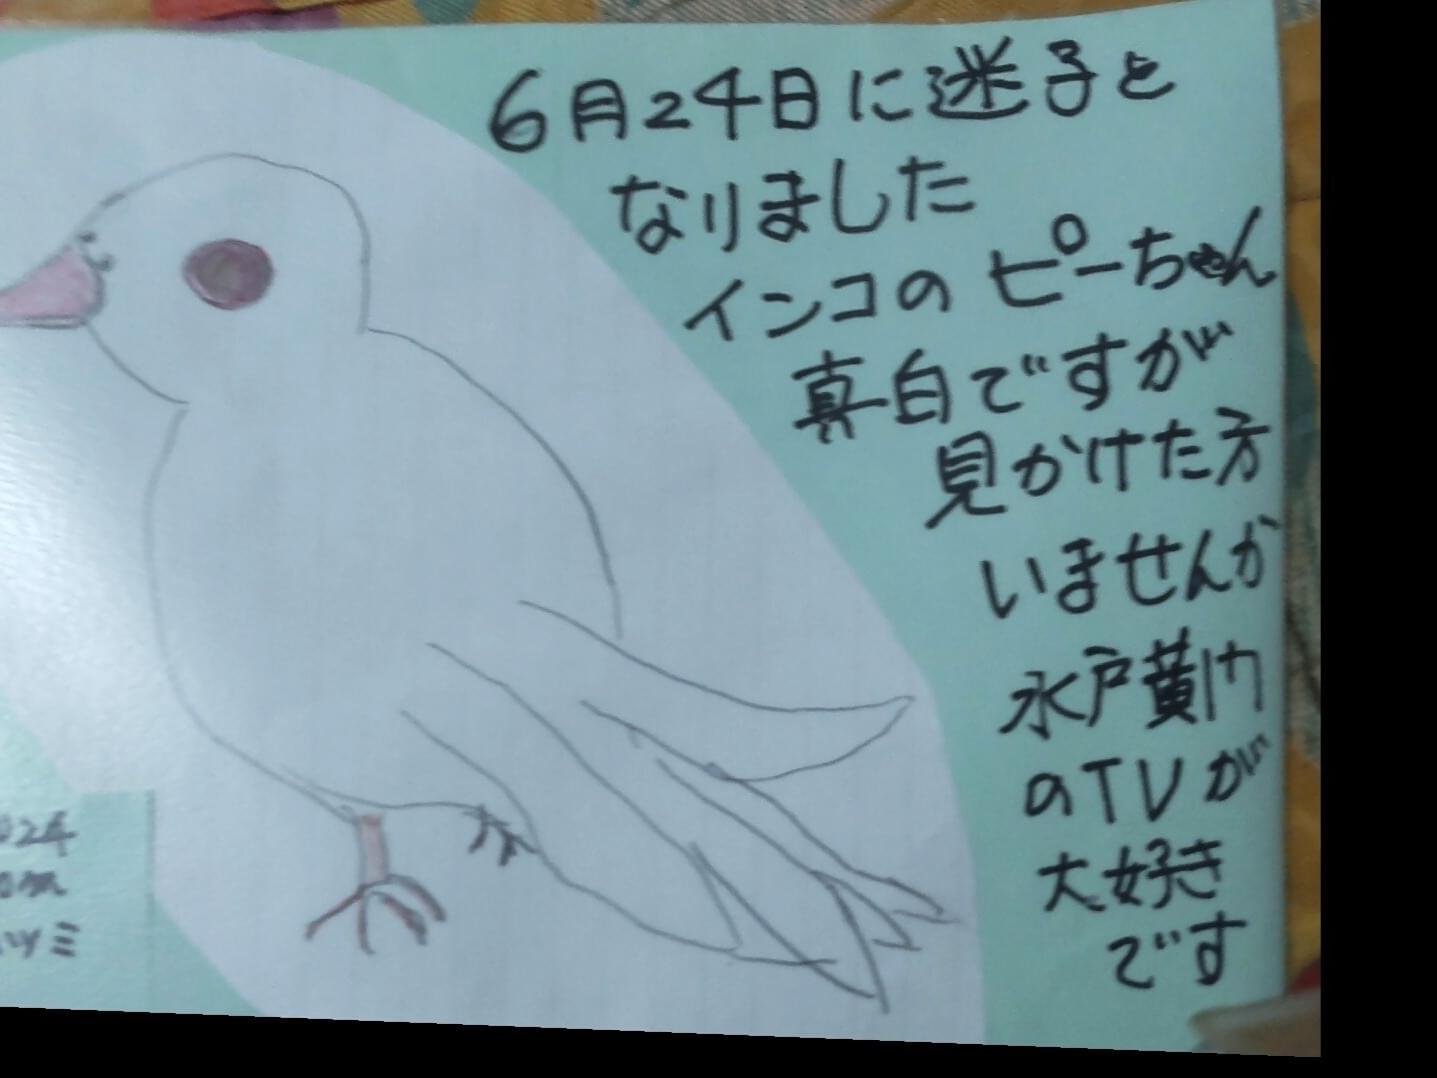 6月24日に迷子と
なりました
インコのピーちゃん
真白ですが
見かけた方
いませんか
水戸黄門
のTVが
大好き
です
024